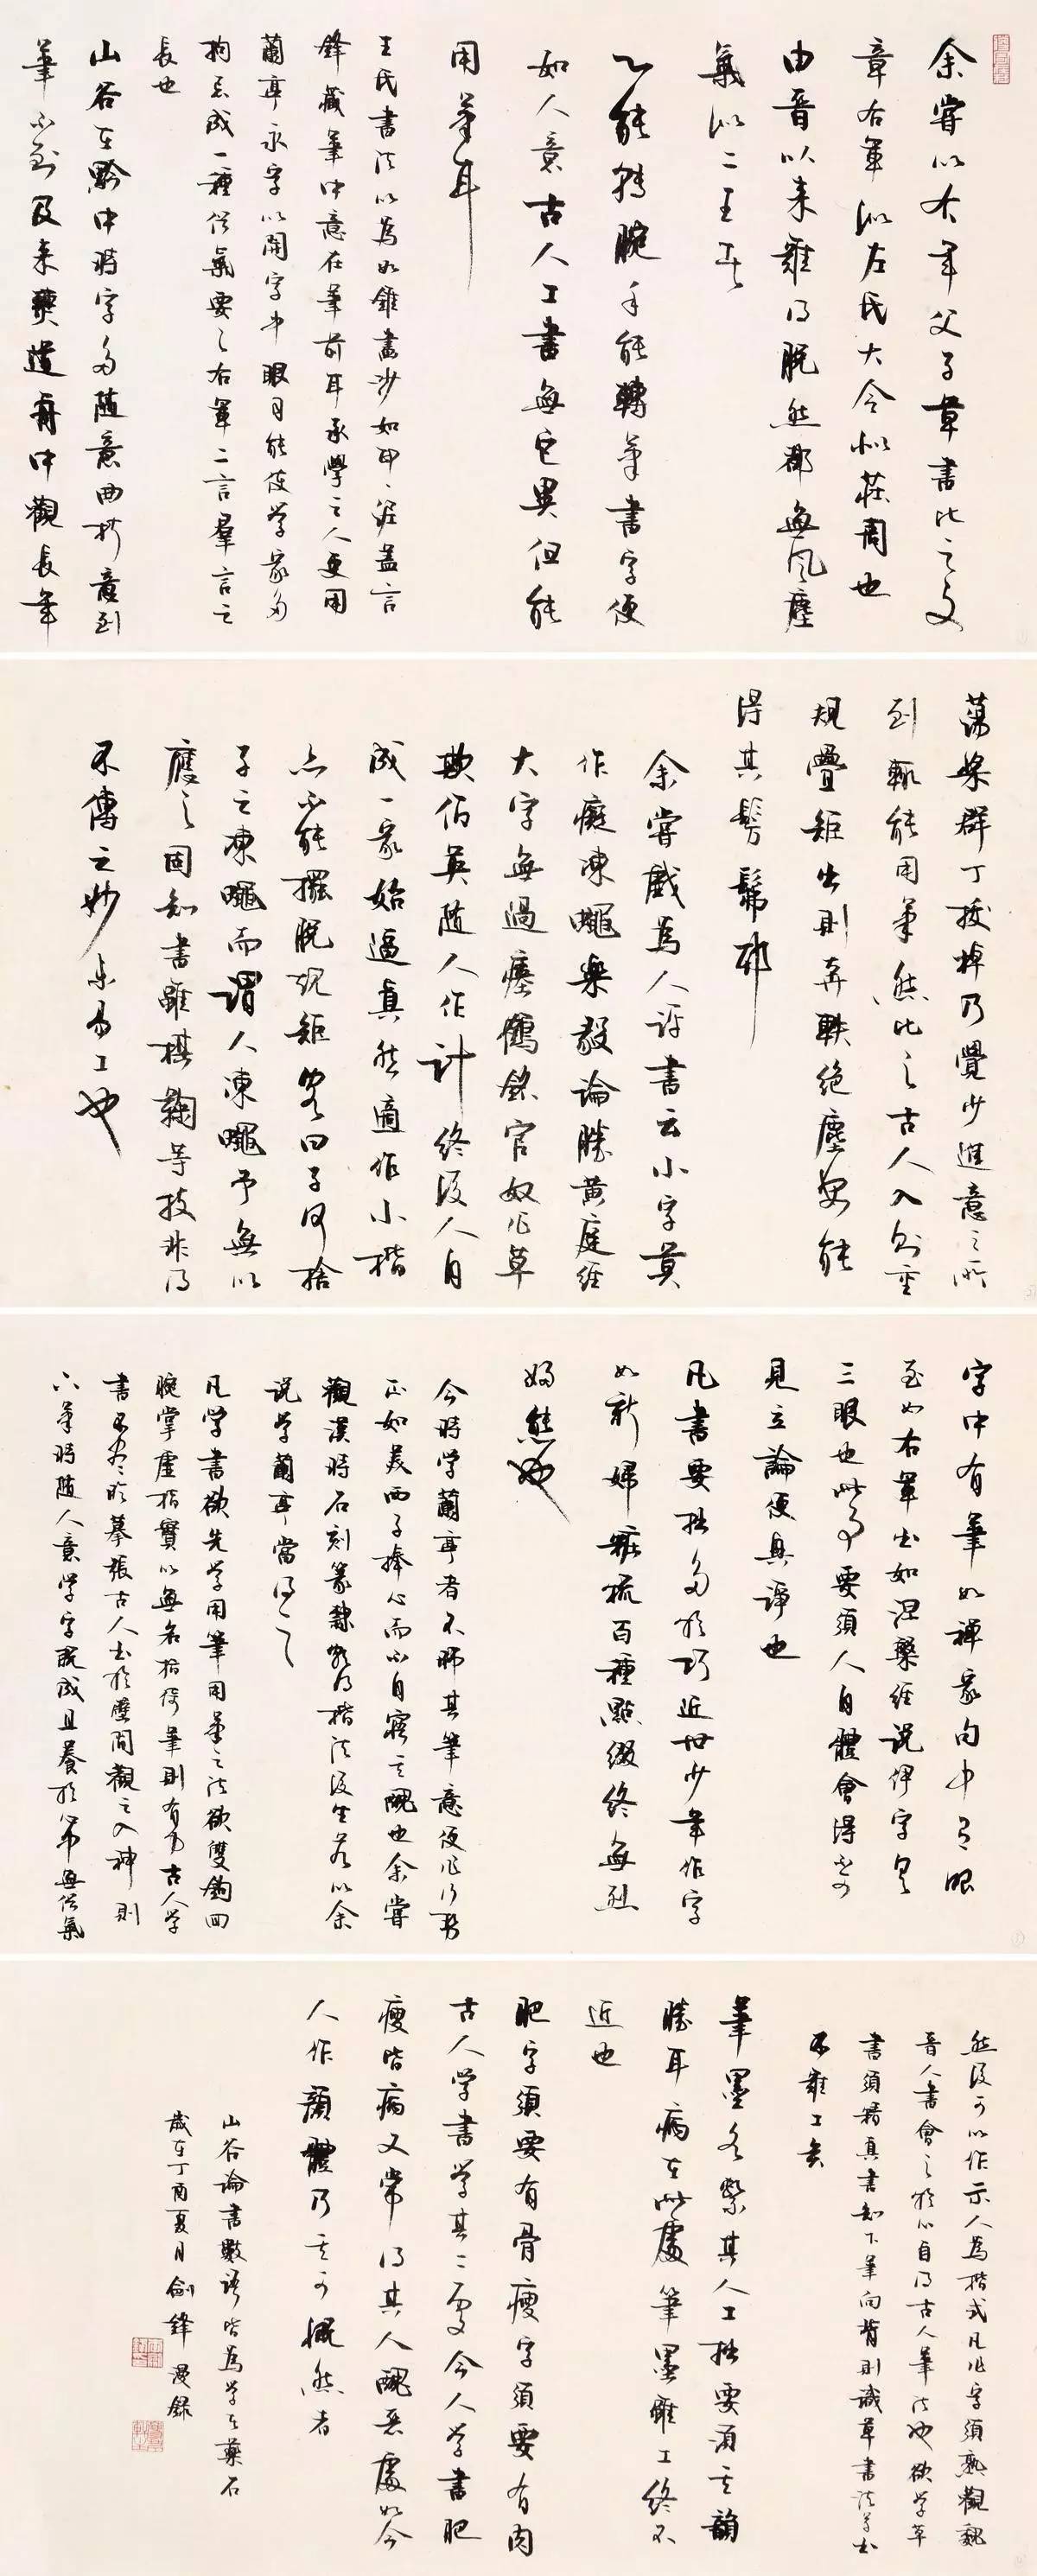 余嘗以右軍父子草書比之文
章右軍似左氏大令似莊周也
由晉以來難得脫然都無風塵
氣似二王者
心能轉腕手能轉筆書字便
如人意古人工書無它異但能
用筆耳
王氏書法以為如錐畫沙如印印泥蓋言
鋒藏筆中意在筆前耳承學之人更用
蘭亭永字以開字中眼目能使學家多
拘忌成一種俗氣要之右軍二言群言之
長也
山谷在黔中時字多隨意曲折意到
筆不到及來僰道舟中觀長年
蕩槳群丁撥棹乃覺少進意之所
到輒能用筆然比之古人入則重
規疊矩出則奔軼絕塵安能
得其髣髴耶
余嘗戲為人評書云小字莫
作癡凍蠅樂毅論勝黃庭經
大字無過瘞鶴銘官奴作草
欺伯英隨人作計終後人自
成一家始逼真然適作小楷
亦不能擺脫規矩客曰子何捨
子之凍蠅而謂人凍蠅予無以
應之固知書雖棋鞠等技非得
不傳之妙未易工也
字中有筆如禪家句中有眼
至如右軍書如涅槃經說伊字具
三眼也此事要須人自體會得不可
見立論便興諍也
凡書要拙多於巧近世少年作字
如新婦妝梳百種點綴終無烈
婦態也
今時學蘭亭者不師其筆意便作行勢
正如美西子捧心而不自寤其醜也余嘗
觀漢時石刻篆隸頗得楷法後生若以余
說學蘭亭當得之
凡學書欲先學用筆用筆之法欲雙鉤回
腕掌虛指實以無名指倚筆則有力古人學
書不盡臨摹張古人書於壁間觀之入神則
下筆時隨人意學字既成且養於心中無俗氣
然後可以作示人為楷式凡作字須熟觀魏
晉人書會之於心自得古人筆法也欲學草
書須精真書知下筆向背則識草書法草書
不難工矣
筆墨各繫其人工拙要須其韻
勝耳病在此處筆墨雖工終不
近也
肥字須要有骨瘦字須要有肉
古人學書學其二處今人學書肥
瘦皆病又常得其人醜惡處如今
人作顏體乃其可慨然者
山谷論書數語皆為學書藥石
歲在丁酉夏月劍鋒漫錄